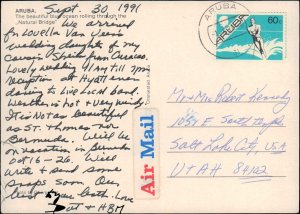 ARUBA,
The beautiful blue ocean rolling through the
"Natural Bridge"
Sept. 30 1991
We arrived
for Louella Van Veen's
wedding daughter of my
cousin Sheila from Curacao.
Lovely wedding & any till 7pm
Reception at Hyatt even
dancing to live Local band.
Weather is hot & very windy
It is Not as beautiful
as St. Thomas Nor
Bermuda. Will be
on vacation in Bermuda
Oct 16-26. Will
write & send some
snaps soon. Our
best to you both. Love
Pat & HBM
Air Mail
ARUBA
ARUBA
60c
Mr & Mrs Robert Kennedy
1057 E South Temple
Salt Lake City, USA
UTAH 84102